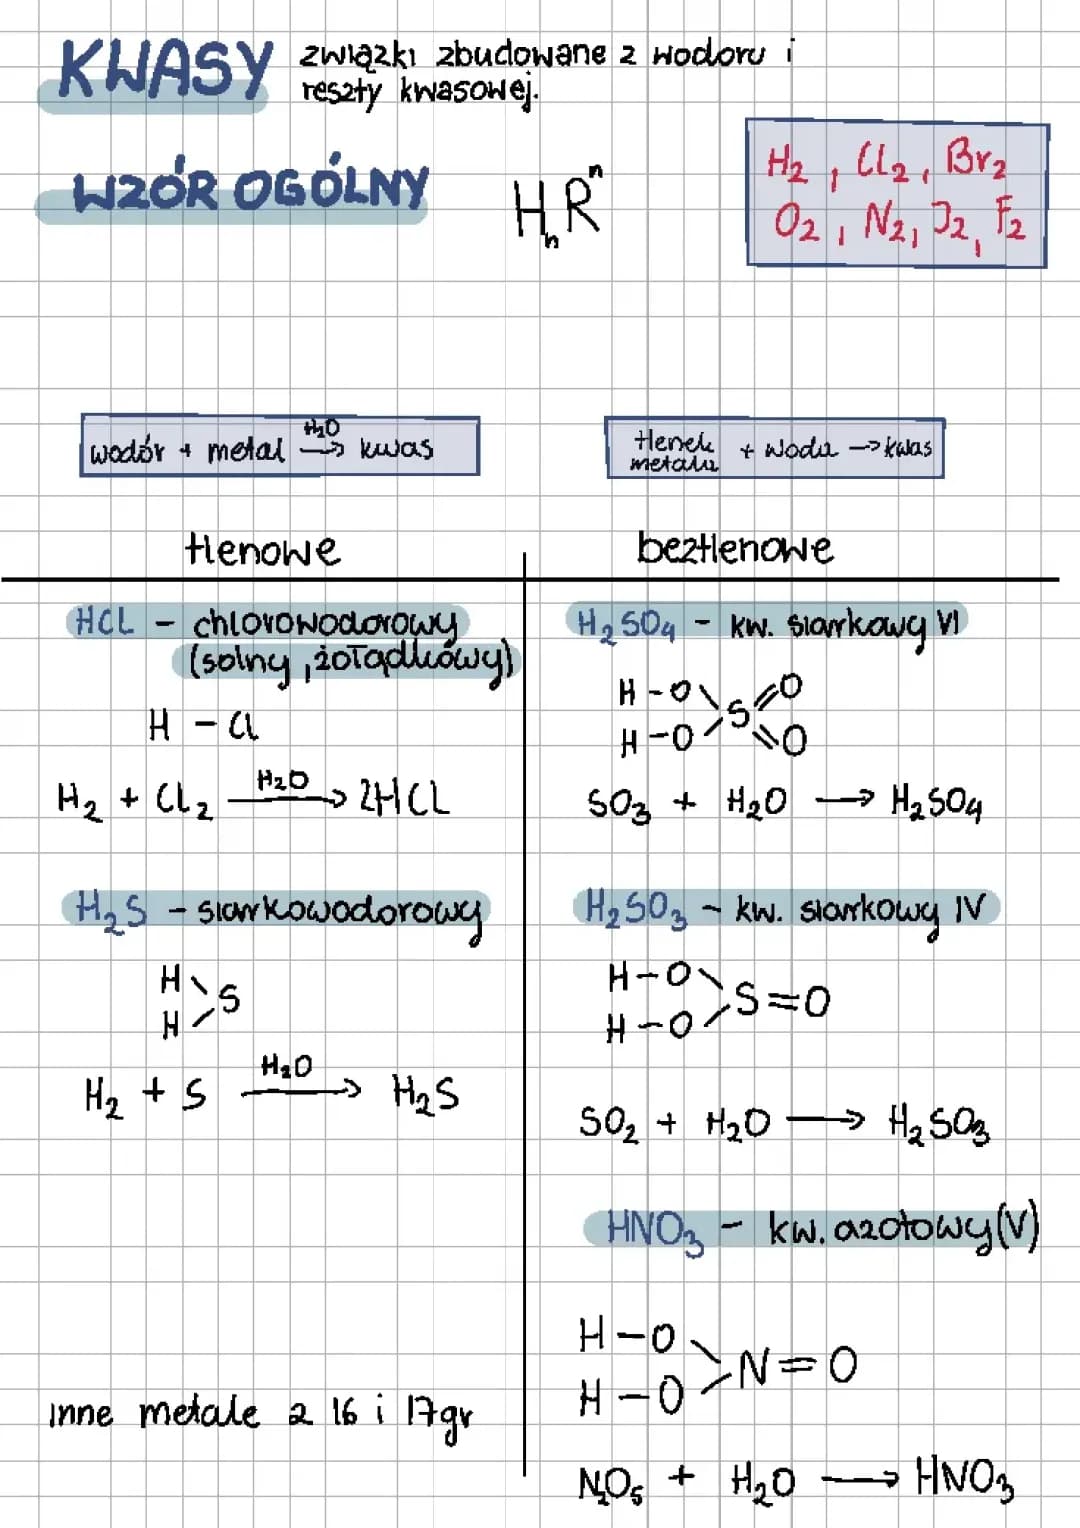 KWASY związki zbudowane z wodoru i
reszty kwasowej.
WZÓR OGÓLNY HₙRⁿ
H₂, Cl₂, Br₂
O₂, N₂, J₂, F₂
wodór + metal H₂O → kwas
tlenek metalu + woda → kwas
tlenowe
HCL - chlorowodorowy
(solny, żołądkowy)
H - Cl
H₂ + Cl₂ H₂O → 2HCL
H₂S - siarkowodorowy
H
S
H
H₂ + S H₂O → H₂S
inne metale z 16 i 17gr
beztlenowe
H₂SO₄ - kw. siarkowy VI
H-O O
S
H-O O
SO₃ + H₂O → H₂SO₄
H₂SO₃ - kw. siarkowy IV
H-O
S=O
H-O
SO₂ + H₂O → H₂SO₃
HNO₃ - kw. azotowy (V)
H-O
N=O
H-O
N₂O₅ + H₂O → HNO₃